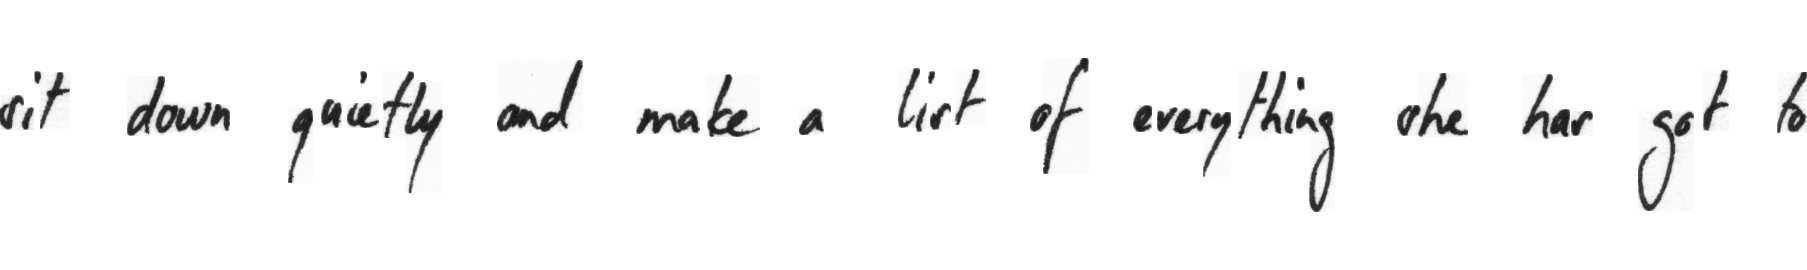 sit down quietly and make a list of everything she has got to